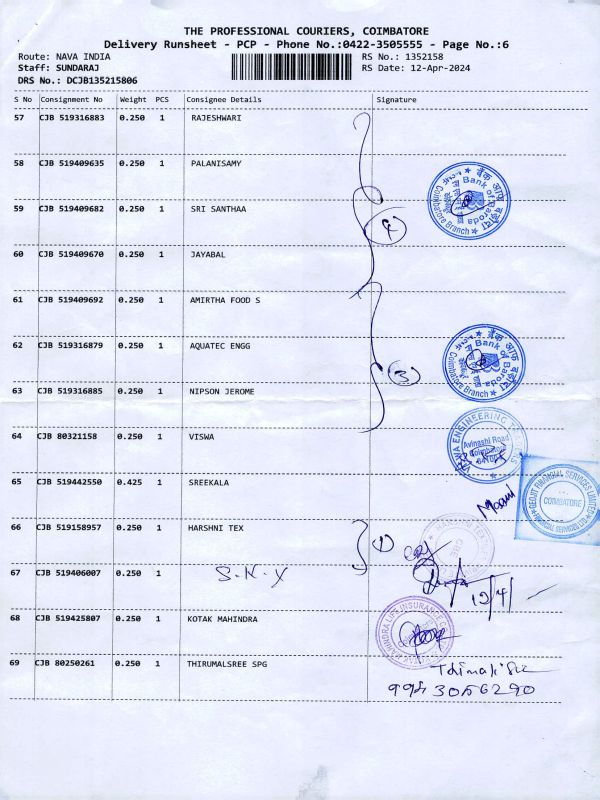 THE PROFESSIONAL COURIERS, COIMBATORE
Delivery Runsheet - PCP - Phone No.:0422-3505555 - Page No.:6
Route: NAVA INDIA
RS No.: 1352158
Staff: SUNDARAJ
RS Date: 12-Apr-2024
DRS No.: DCJB135215806
S No Consignment No Weight PCS Consignee Details Signature
57 CJB 519316883 0.250 1 RAJESHWARI
58 CJB 519409635 0.250 1 PALANISAMY
बैंक आफ बड़ौदा
Bank of Baroda
Coimbatore Branch
59 CJB 519409682 0.250 1 SRI SANTHAA
(4)
60 CJB 519409670 0.250 1 JAYABAL
61 CJB 519409692 0.250 1 AMIRTHA FOOD S
62 CJB 519316879 0.250 1 AQUATEC ENGG
बैंक आफ बड़ौदा
Bank of Baroda
Coimbatore Branch
(3)
63 CJB 519316885 0.250 1 NIPSON JEROME
64 CJB 80321158 0.250 1 VISWA
ENGINEERING
Avinashi Road
65 CJB 519442550 0.425 1 SREEKALA
GEOJIT FINANCIAL SERVICES LIMITED
COIMBATORE
66 CJB 519158957 0.250 1 HARSHNI TEX
67 CJB 519406007 0.250 1 S.N.X
12/4/
68 CJB 519425807 0.250 1 KOTAK MAHINDRA
KOTAK MAHINDRA LIFE INSURANCE
69 CJB 80250261 0.250 1 THIRUMALSREE SPG
9943056290